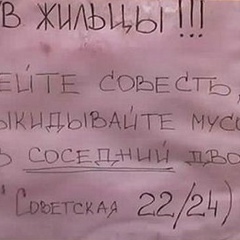 В ЖИЛЬЦЫ!!!
ЕЙТЕ СОВЕСТЬ,
ЫКИДЫВАЙТЕ МУСО
В СОСЕДНИЙ ДВО
СОВЕТСКАЯ 22/24)